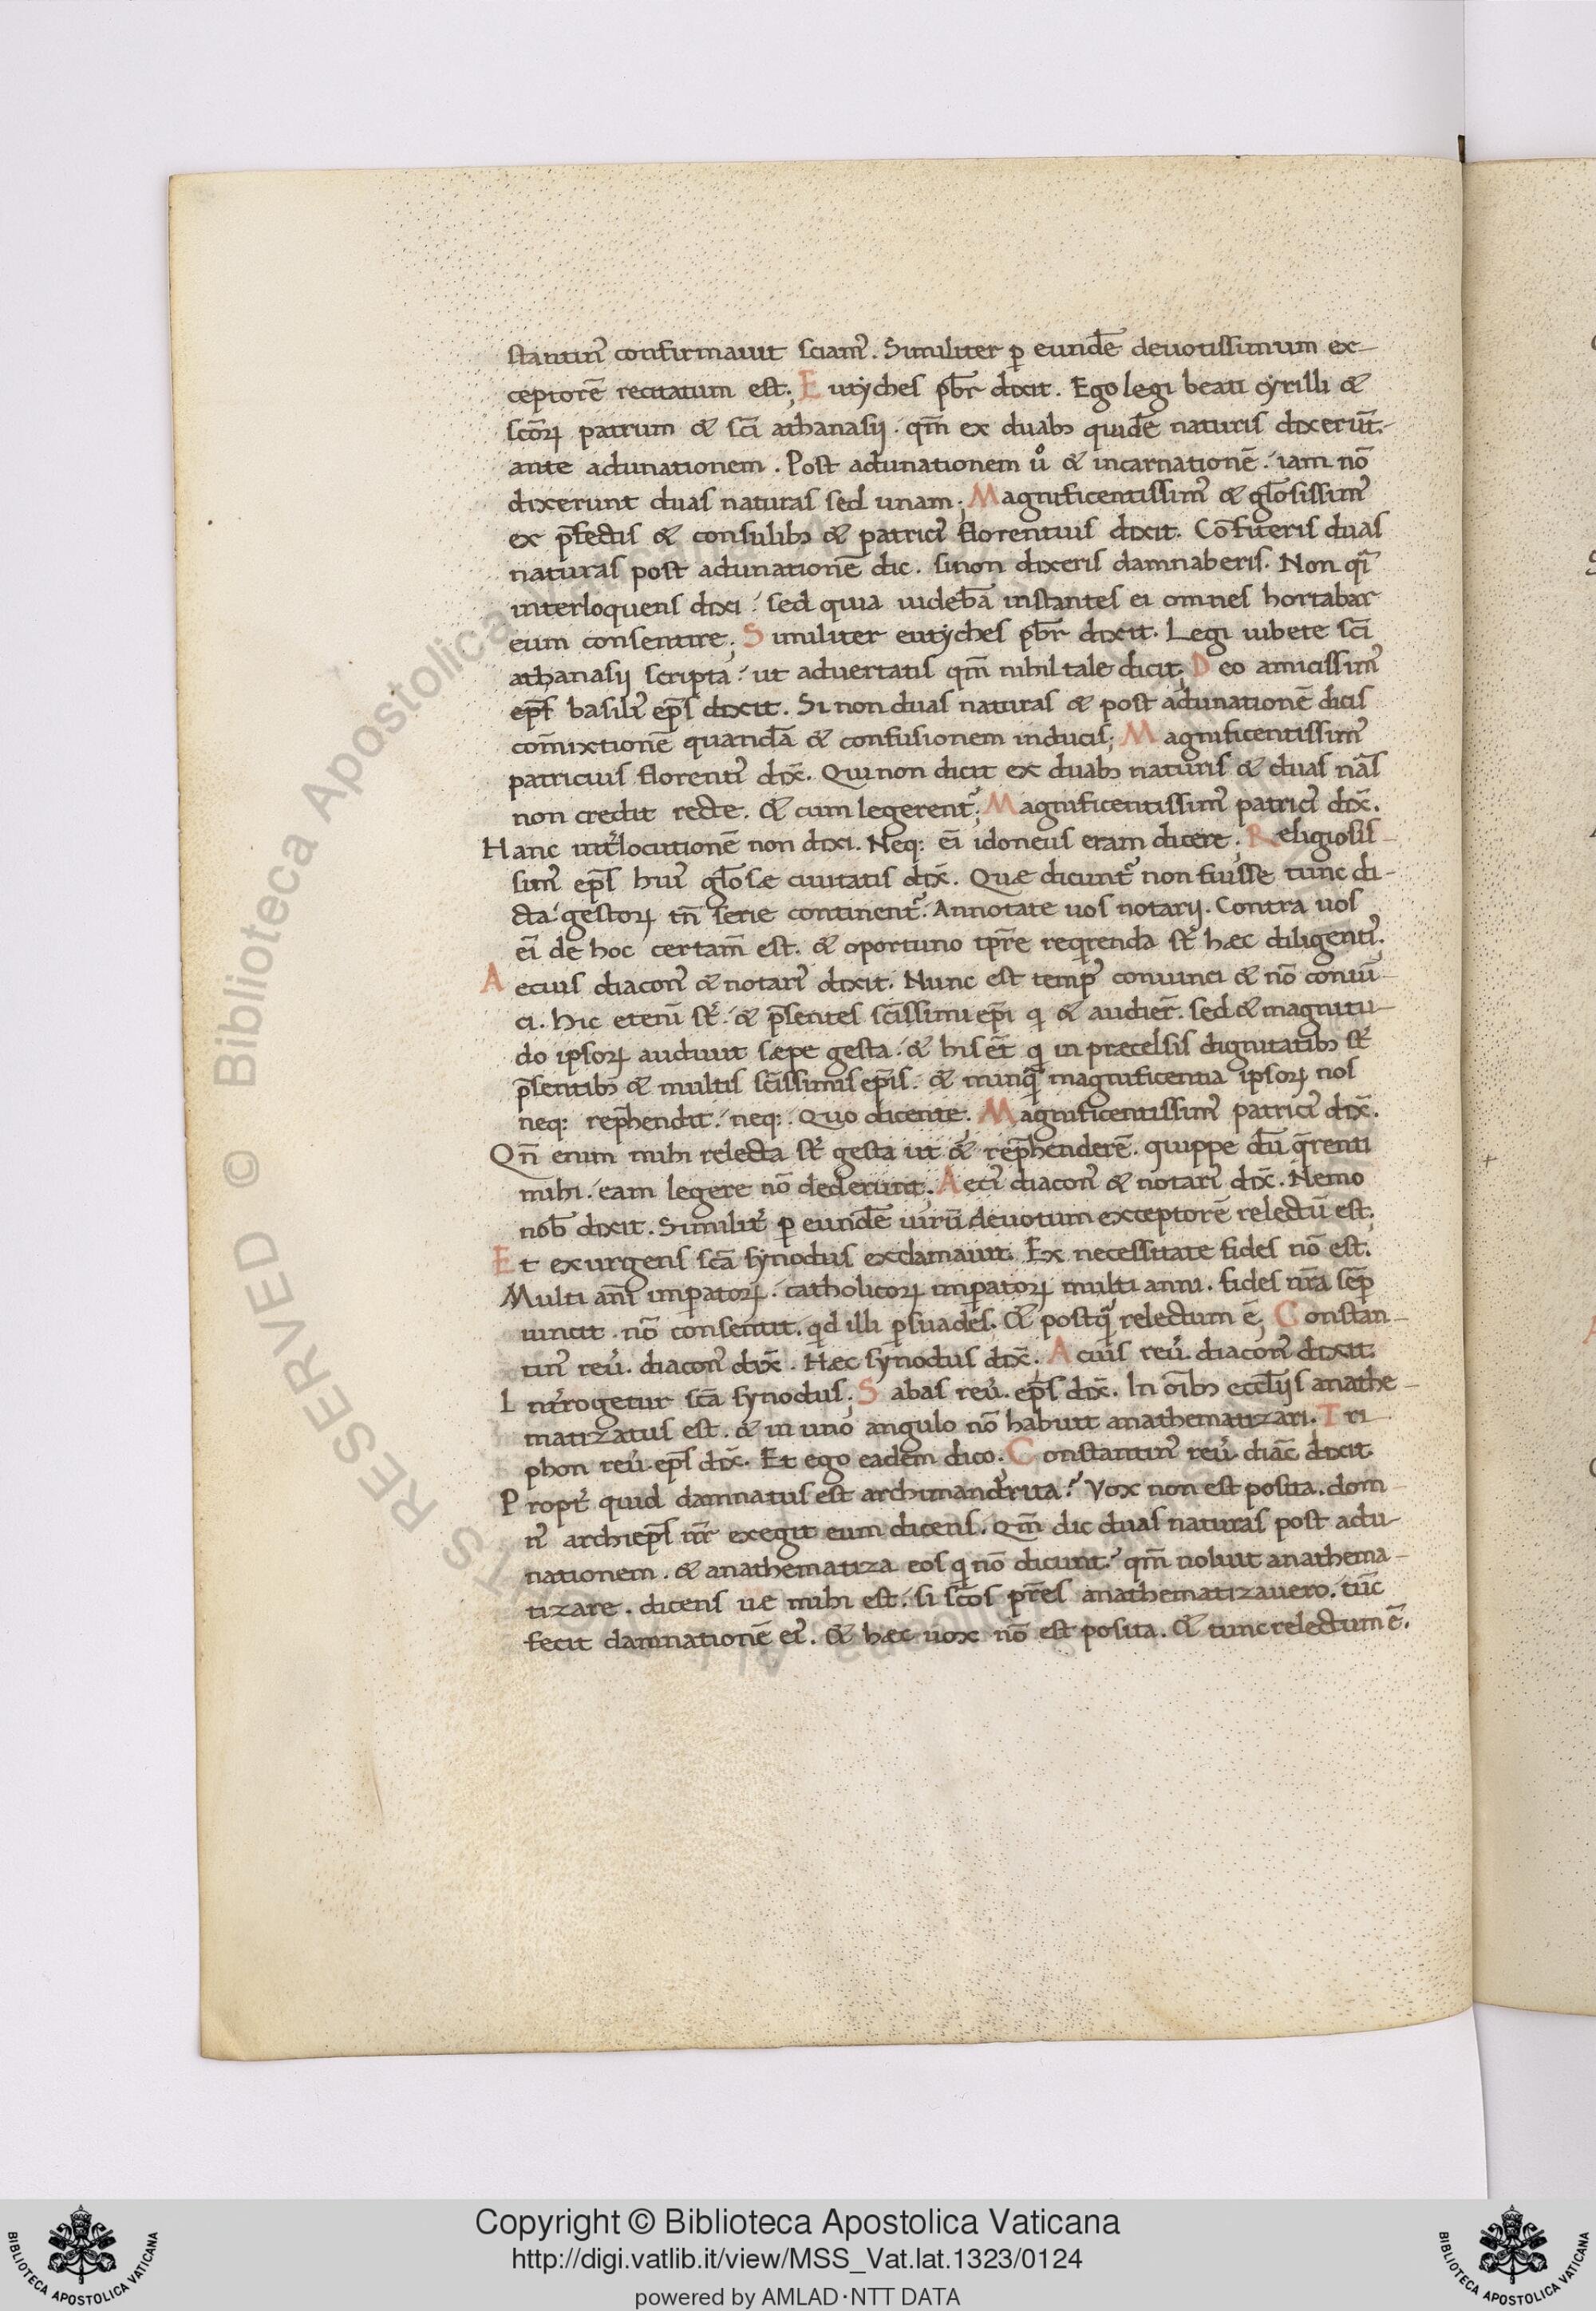 stantin᾽ confirmauit sciam᾽. Similiter ꝑ eundē deuotissimum ex-
ceptorē recitatum est; Eutyches pb̄r dixit. Ego legi beati cyrilli &
scōꝝ patrum & sc̄i athanasij. qm̄ ex duabꝫ quidē naturis dixerūt.
ante adunationem. Post adunationem uͦ & incarnationē. iam nō
dixerunt duas naturas sed unam; Magnificentissim᾽ & gl̄osissim᾽
ex p̄fectis & consulibꝫ & patrici᾽ florentius dixit. Cōfiteris duas
naturas post adunationē dic. si non dixeris damnaberis. Non qsi
interloquens dixi. sed quia uidebā instantes ei omnes hortabar
eum consentire; Similiter eutyches pb̄r dixit. Legi iubete sc̄i
athanasij scripta. ut aduertatis qm̄ nihil tale dicit; Deo amicissim᾽
ep̄s basili᾽ ep̄s dixit. Si non duas naturas & post adunationē dicis
cōmixtionē quandā & confusionem inducis; Magnificentissim᾽
patricius florenti᾽ dix̄. Qui non dicit ex duabꝫ naturis & duas nās
non credit recte. & cum legerent᾽; Magnificentissim᾽ patrici᾽ dix̄.
Hanc int᾽locutionē non dixi. Neq: ei᾽ idoneus eram dicere; Religiosis-
sim᾽ ep̄s hui᾽ gl̄osæ ciuitatis dix̄. Quæ dicunt᾽ non fuisse tunc di-
cta. gestoꝝ tn̄ serie continent᾽. Annotate uos notarij. Contra uos
ei᾽ de hoc certam̄ est. & oportuno tp̄re reqirenda st᾽ hæc diligenti᾽.
Aecius diacon᾽ & notari᾽ dixit. Nunc est temp᾽ conuinci & nō conuī-
ci. Hic etenī st᾽. & p̄sentes sc̄issimi ep̄i qi & audier̄. sed & magnitu-
do ipsoꝝ audiuit sæpe gesta. & his ēt qi in præcelsis dignitatibꝫ st᾽
p̄sentibꝫ & multis sc̄issimis ep̄is. & nunqā magnificentia ipsoꝝ nos
neq: rep̄hendit. neq:. Quo dicente. Magnificentissim᾽ patrici᾽ dix̄.
Qn̄ enim mihi relecta st᾽ gesta ut & rep̄henderē. quippe dū q̄renti
mihi. eam legere nō dederunt; Aeci᾽ diacon᾽ & notari᾽ dix̄. Nemo
nob̄ dixit. Similit᾽ ꝑ eundē uirū deuotum exceptorē relectū est;
Et exurgens scā synodus exclamauit. Ex necessitate fides nō est.
Multi ann̄i impatoꝝ. catholicoꝝ impatoꝝ multi anni. fides nr̄a sēp
uincit. nō consentit. qd illi ꝑsuades. & postqā relectum ē; Constan-
tin᾽ reu᾽. diacon᾽ dix̄. Hæc synodus dix̄. Acius reu᾽. diacon᾽ dixit.
Int᾽rogetur scā synodus; Sabas reu᾽. ep̄s dix̄. In oībꝫ ecclijs anathe-
matizatus est. & in uno angulo nō habuit anathematizari. Tri-
phon reu᾽. ep̄s dix̄. Et ego eadem dico. Constantin᾽ reu᾽. diāc dixit
Propt᾽ quid damnatus est archimandrita? Vox non est posita. dom-
n᾽ archiep̄s nr̄ exegit eum dicens. Qm̄ dic duas naturas post adu-
nationem. & anathematiza eos qi nō dicunt? qm̄ noluit anathema-
tizare. dicens ue mihi est. si sc̄os pr̄es anathematizauero. tūc
fecit damnationē ei᾽. & hæc uox nō est posita. & tunc relectum ē.
© Biblioteca Apostolica
RESERVED
Copyright © Biblioteca Apostolica Vaticana
http://digi.vatlib.it/view/MSS_Vat.lat.1323/0124
powered by AMLAD·NTT DATA
BIBLIOTECA APOSTOLICA VATICANA
BIBLIOTECA APOSTOLICA VATICANA